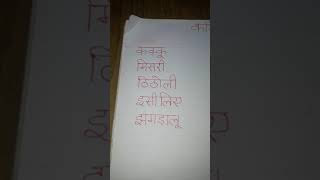 का
कक्कू
मिसरी
ठिठोली
इसीलिए
झगड़ालू